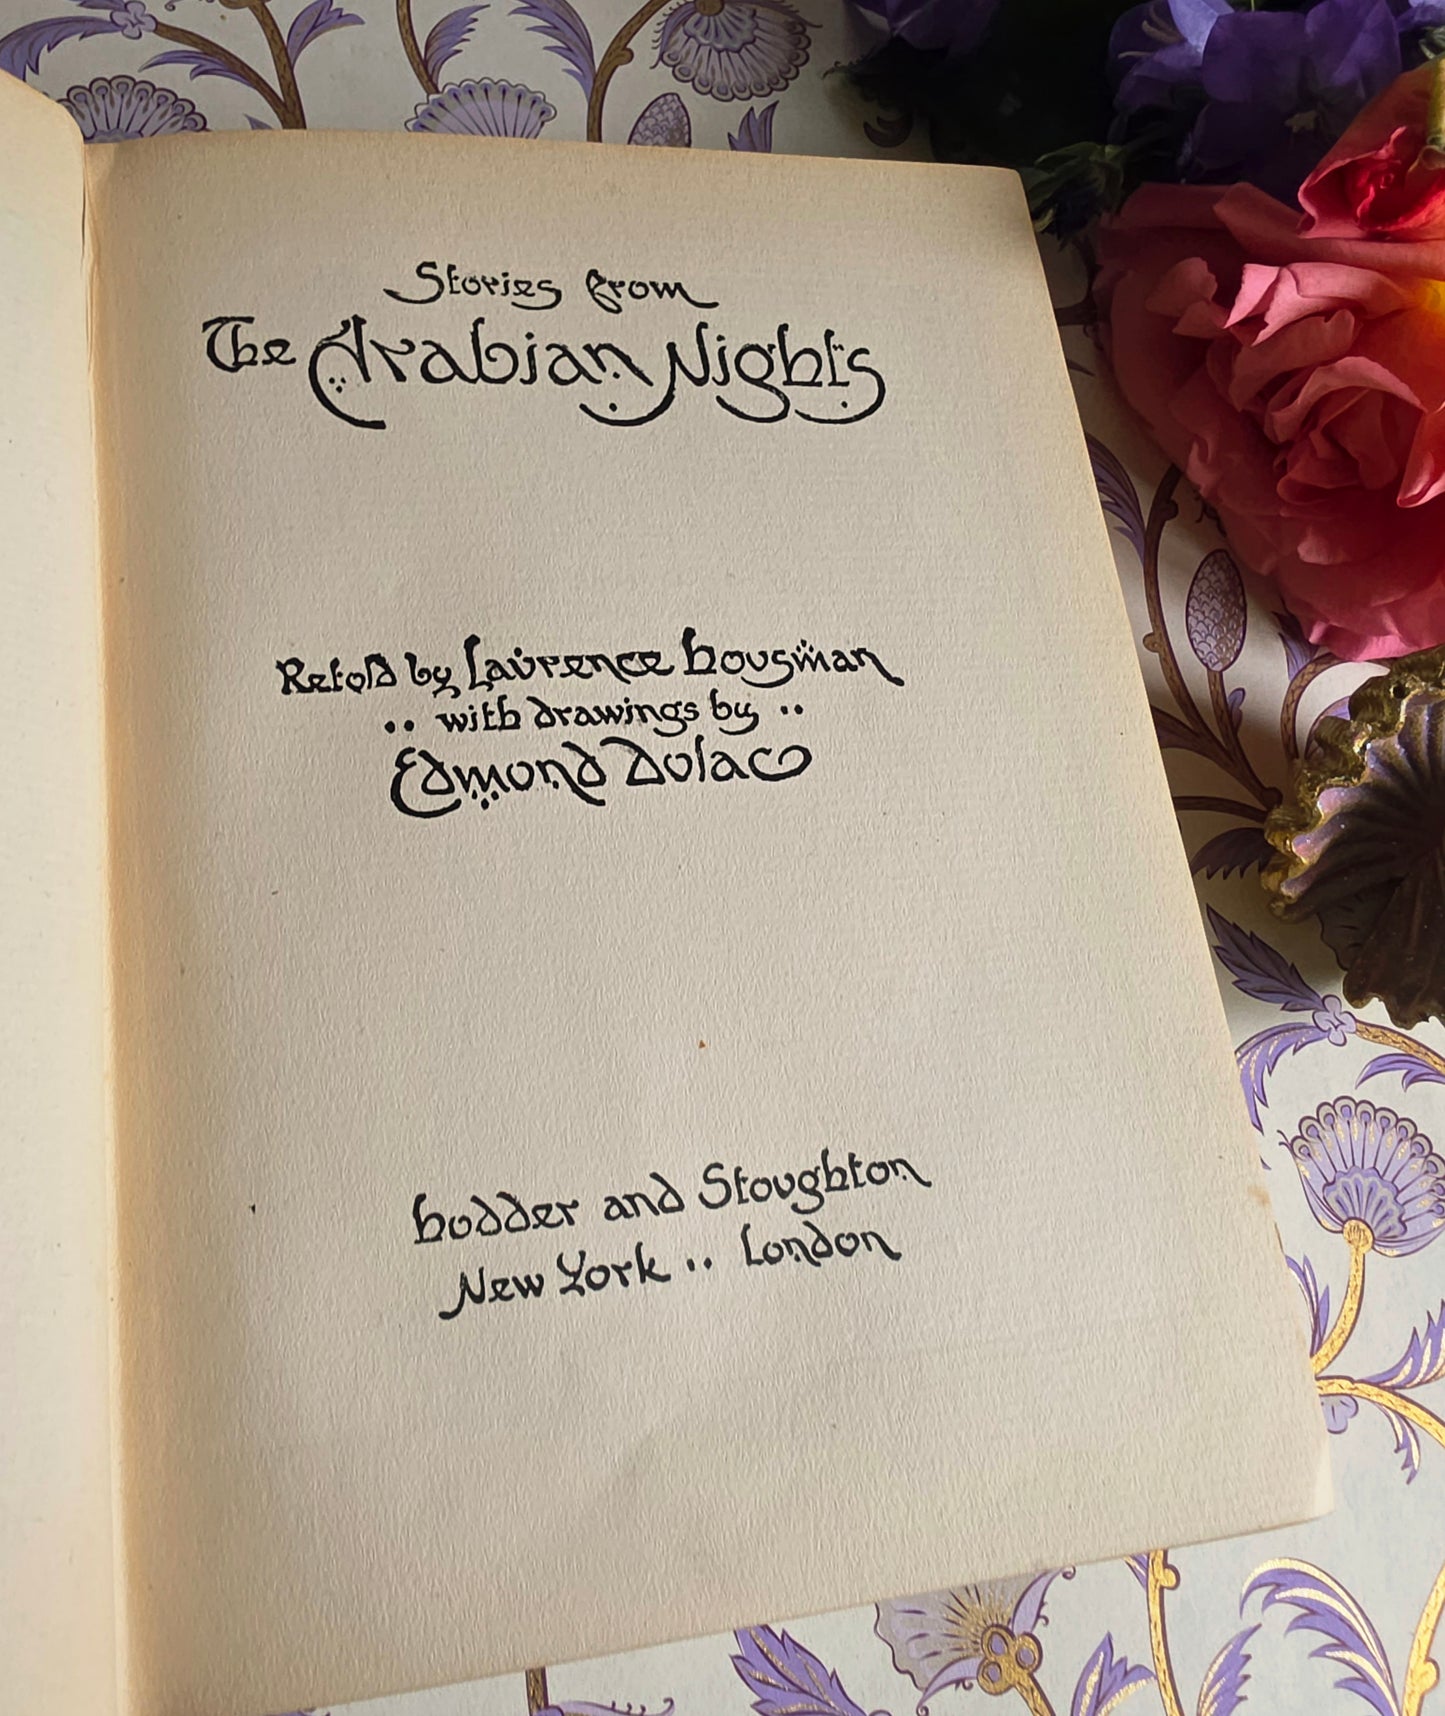 Stories from
The Arabian Nights
Retold by Laurence Housman
·· with drawings by ··
Edmond Dulac
Hodder and Stoughton
New York ·· London